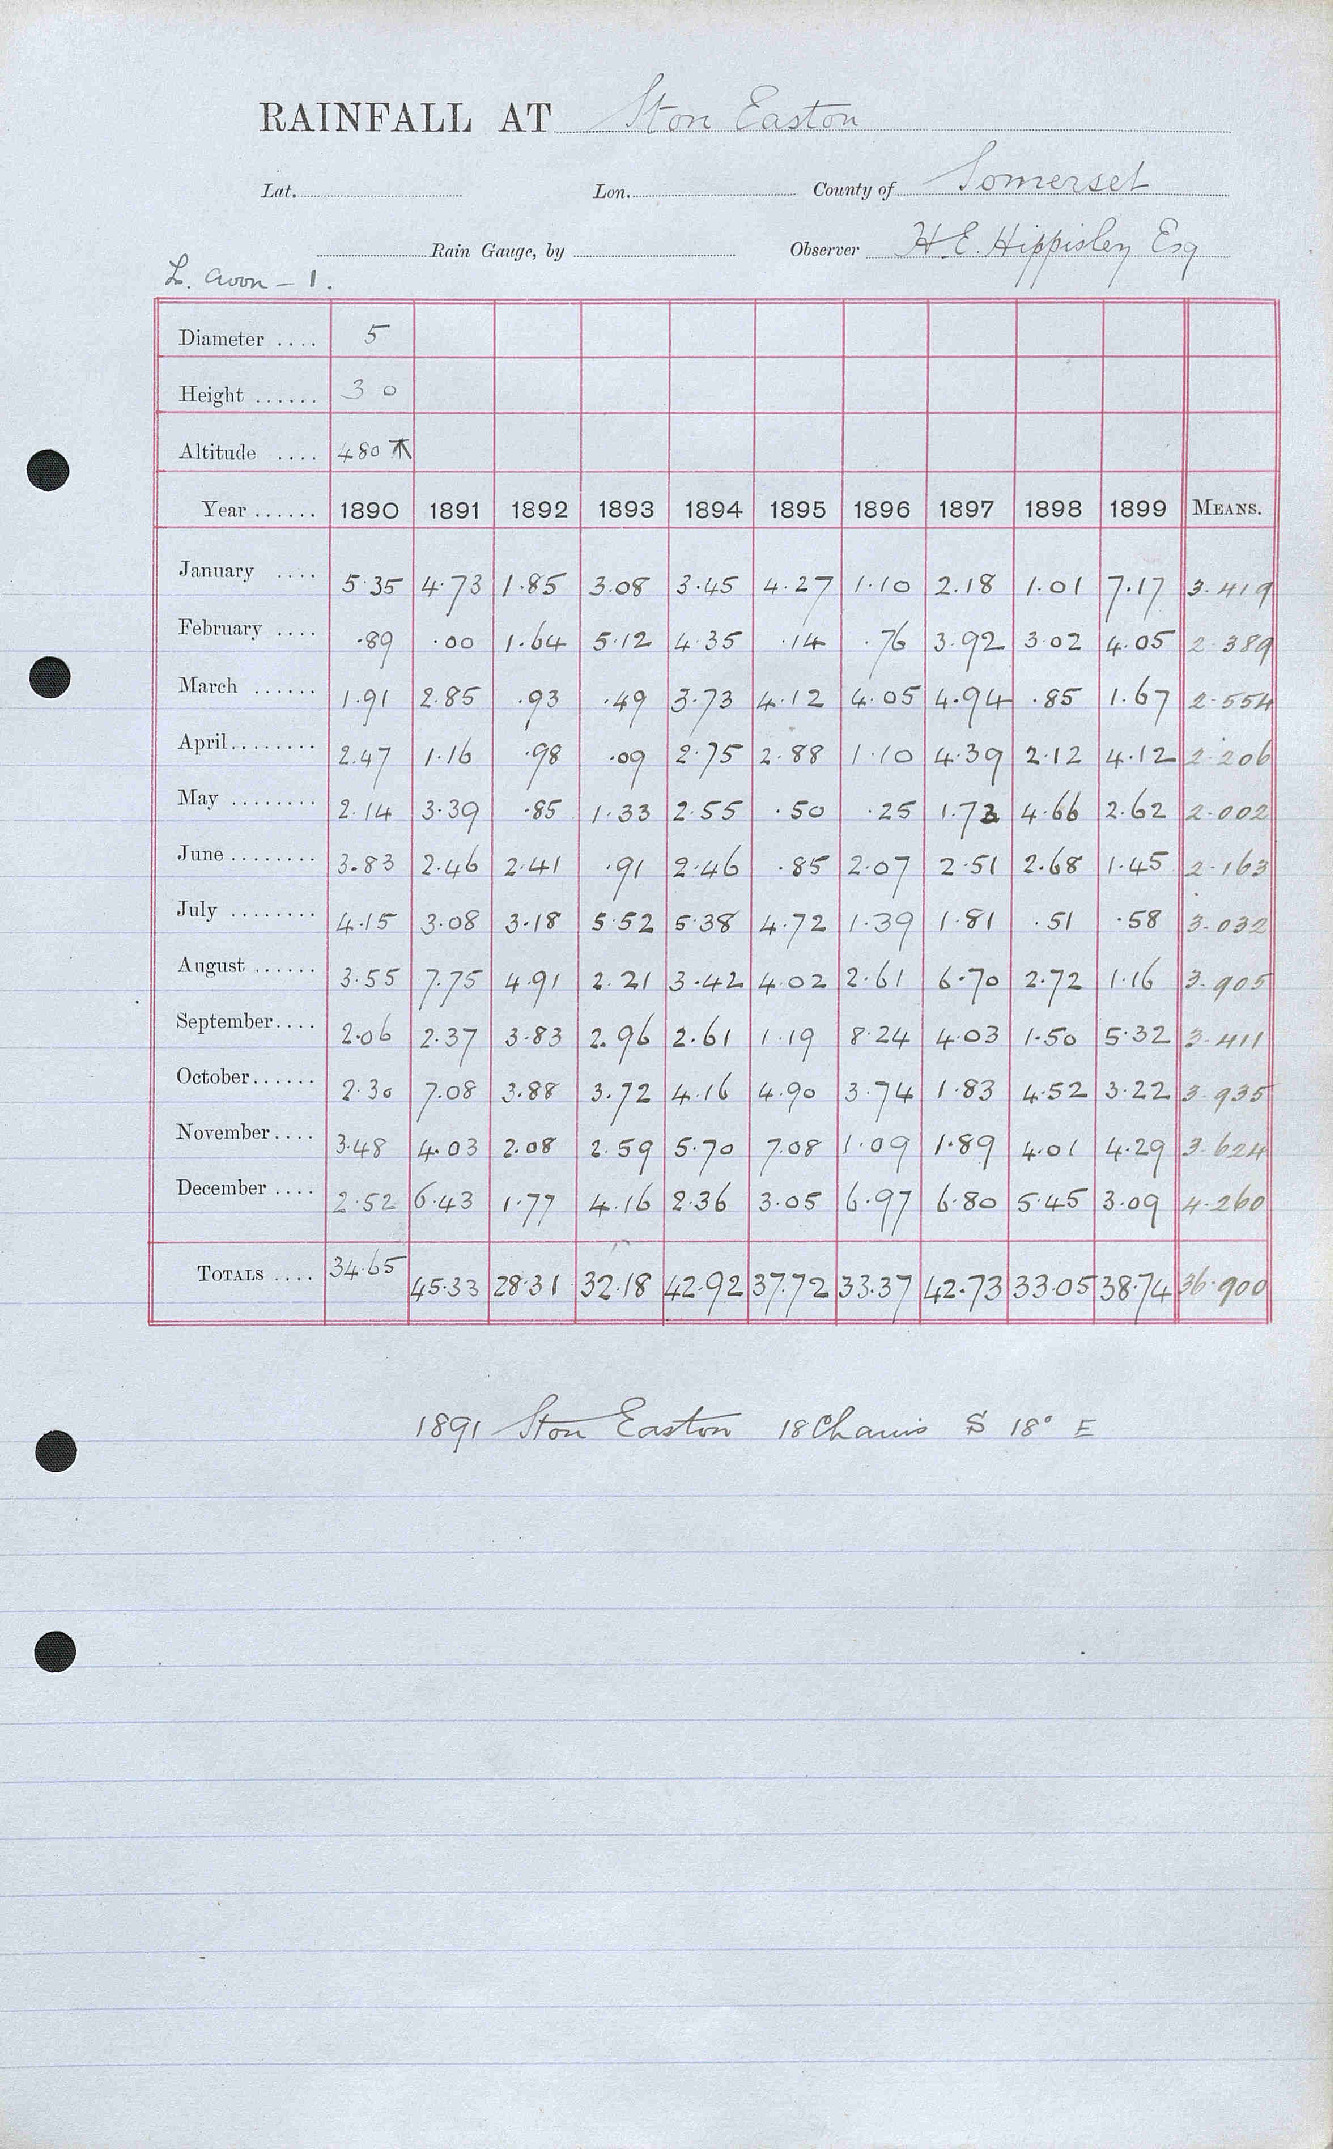 RAINFALL AT Ston Easton
Lat. Lon. County of Somerset
Rain Gauge, by Observer H E. Hippisley Esq
L. Avon - 1.
Diameter .... 5
Height ...... 3 0
Altitude .... 480
Year ...... 1890 1891 1892 1893 1894 1895 1896 1897 1898 1899 MEANS.
January .... 5.35 4.73 1.85 3.08 3.45 4.27 1.10 2.18 1.01 7.17 3.419
February .... .89 .00 1.64 5.12 4.35 .14 .76 3.92 3.02 4.05 2.389
March ...... 1.91 2.85 .93 .49 3.73 4.12 4.05 4.94 .85 1.67 2.554
April........ 2.47 1.16 .98 .09 2.75 2.88 1.10 4.39 2.12 4.12 2.206
May ........ 2.14 3.39 .85 1.33 2.55 .50 .25 1.73 4.66 2.62 2.002
June ........ 3.83 2.46 2.41 .91 2.46 .85 2.07 2.51 2.68 1.45 2.163
July ........ 4.15 3.08 3.18 5.52 5.38 4.72 1.39 1.81 .51 .58 3.032
August ...... 3.55 7.75 4.91 2.21 3.42 4.02 2.61 6.70 2.72 1.16 3.905
September.... 2.06 2.37 3.83 2.96 2.61 1.19 8.24 4.03 1.50 5.32 3.411
October...... 2.30 7.08 3.88 3.72 4.16 4.90 3.74 1.83 4.52 3.22 3.935
November.... 3.48 4.03 2.08 2.59 5.70 7.08 1.09 1.89 4.01 4.29 3.624
December .... 2.52 6.43 1.77 4.16 2.36 3.05 6.97 6.80 5.45 3.09 4.260
TOTALS .... 34.65 45.33 28.31 32.18 42.92 37.72 33.37 42.73 33.05 38.74 36.900
1891 Ston Easton 18 Chains S 18° E